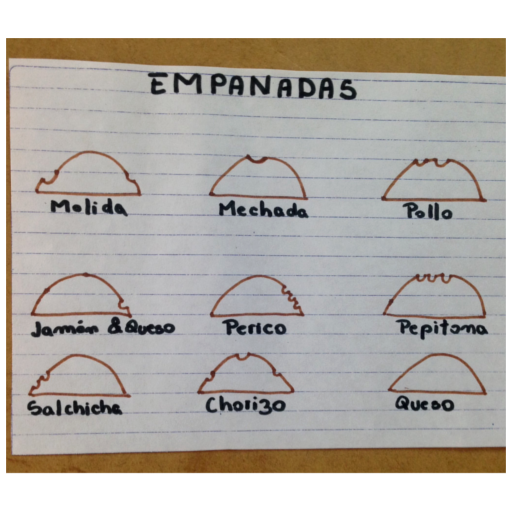 EMPANADAS
Molida Mechada Pollo
Jamón &Queso Perico Pepitona
Salchicha Chorizo Queso